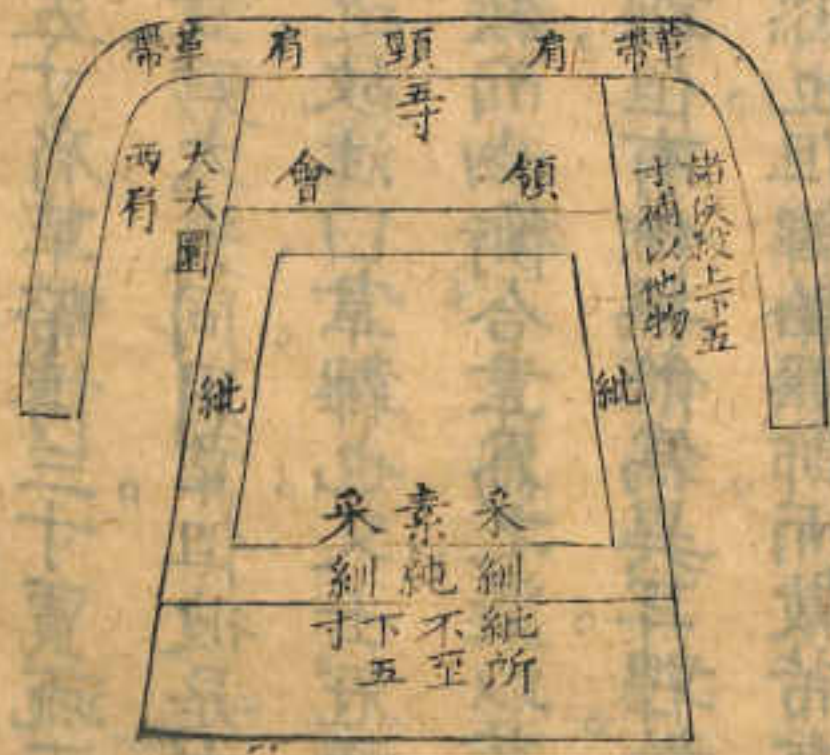 革帶 肩 頸 肩 革帶
五寸
領 會
諸侯殺上下五
寸補以他物
大夫圜
兩
紕 紕
采 素 采
紃 純 紃
紕所
不至
下五
寸